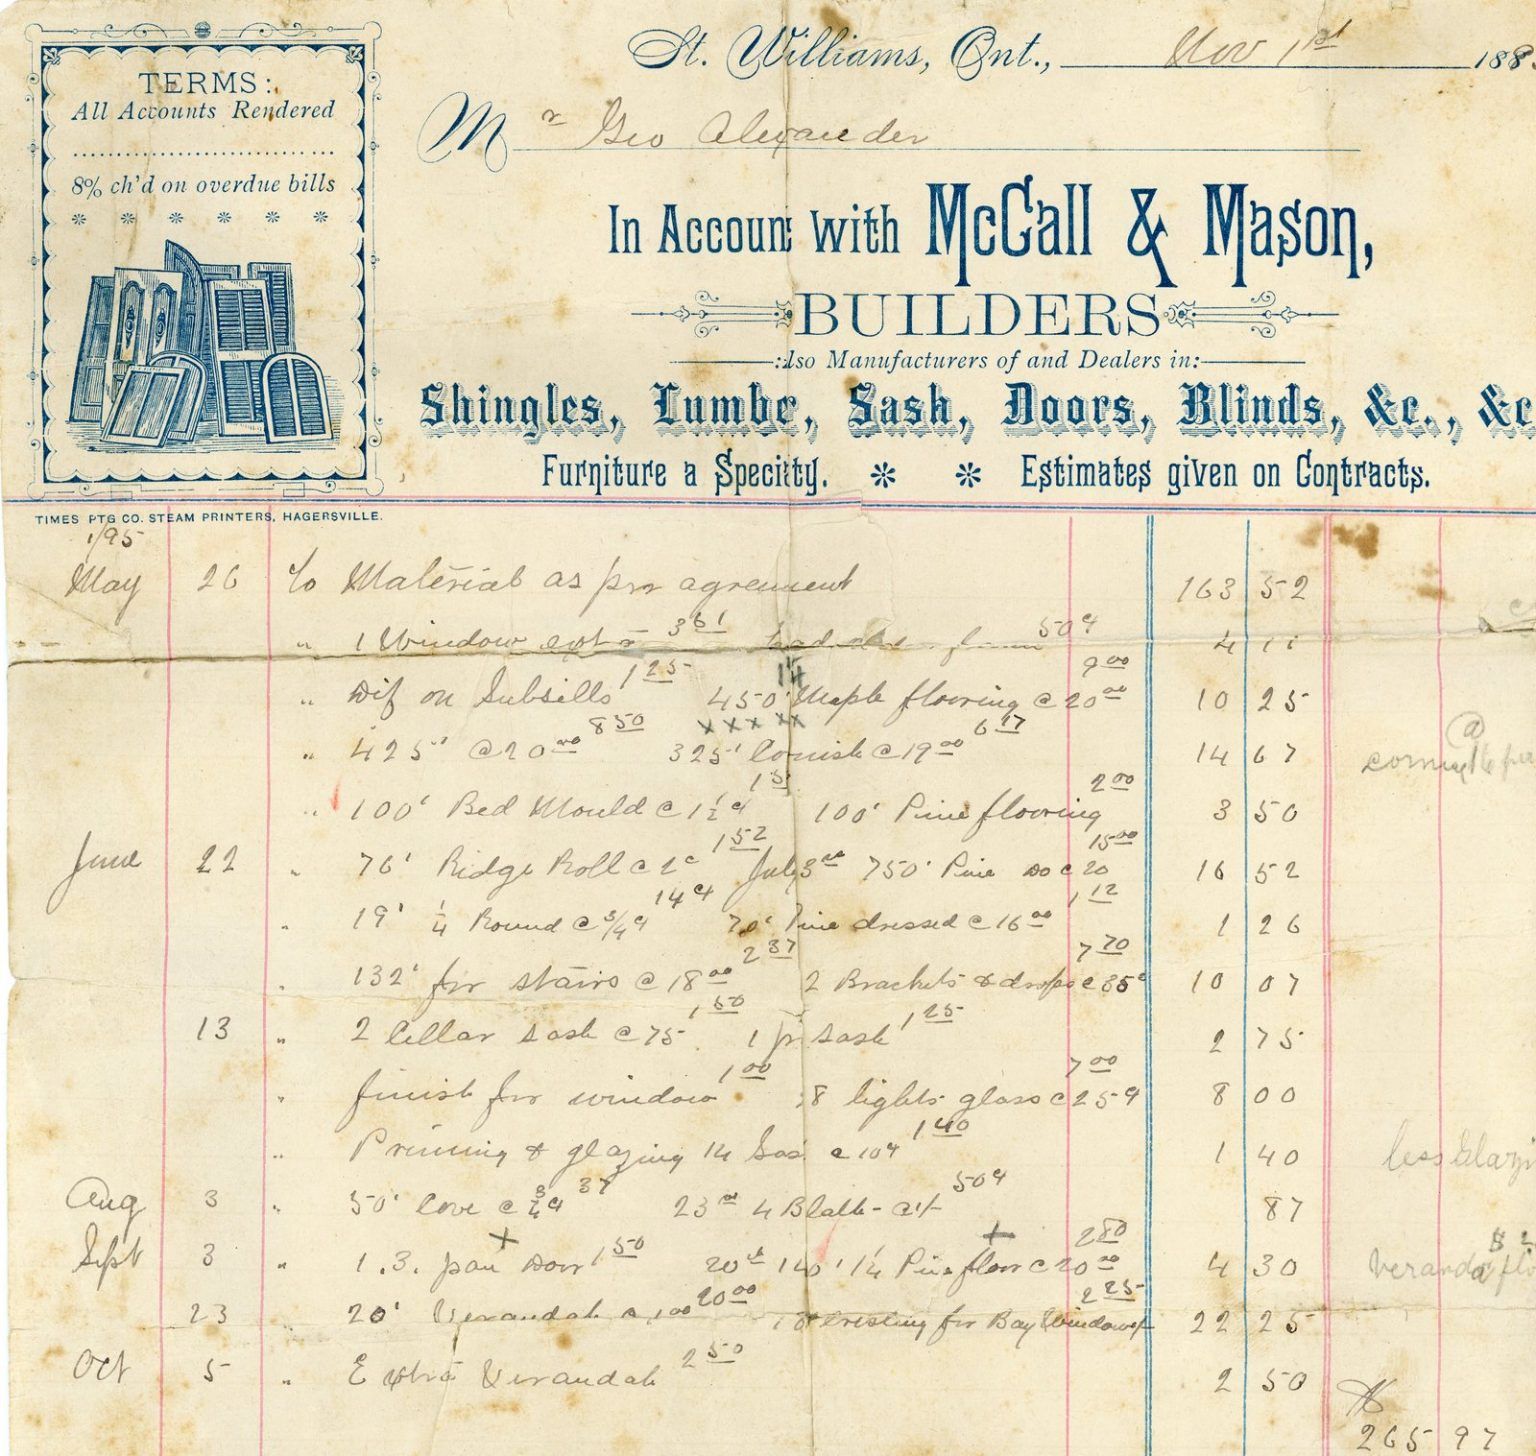 St. Williams, Ont., Nov 1st 188
TERMS:
All Accounts Rendered
8% ch'd on overdue bills
Mr Geo Alexander
In Account with McCall & Mason,
BUILDERS
Also Manufacturers of and Dealers in:
Shingles, Lumber, Sash, Doors, Blinds, &c., &c
Furniture a Specilty. Estimates given on Contracts.
TIMES PTG CO. STEAM PRINTERS, HAGERSVILLE.
1/95
May 26 To Material as per agreement 163 52
" 1 Window extra 361 50¢ 4 11
" Dif on Subsills 1 25 450' Maple flooring @ 20 00 9 00 10 25
" 425' @ 20 00 8 50 325' Cornish @ 19 00 6 17 14 67
" 100' Bed Mould @ 1½ ¢ 1 5 100' Pine flooring 2 00 3 50
June 22 " 76' Ridge Roll @ 2c 1 52 July 3rd 750' Pine Do @ 20 15 00 16 52
" 19' ¼ Round @ ¾ ¢ 14 ¢ 70' Pine dressed @ 16 00 1 12 1 26
" 132' for stairs @ 18 00 2 37 2 Brackets & drops @ 385¢ 7 70 10 07
13 " 2 Cellar sash @ 75 1 50 1 pr sash 1 25 2 75
" finish for window 1 00 28 lights glass @ 25¢ 7 00 8 00
" Priming & glazing 14 Sas @ 10¢ 1 40 1 40
less Glazi
Aug 3 " 50' Cove @ ¾ ¢ 37 23rd 4 B 50¢ 87
Sept 3 " 1.3. pan Door 1 50 20th 140' 1¼ Pine floor @ 20 00 2 80 4 30
Veranda flo
23 " 20' Verandah @ 1 00 20 00 Cresting for Bay Window 2 25 22 25
Oct 5 " Extra Verandah 2 50 2 50
265 97